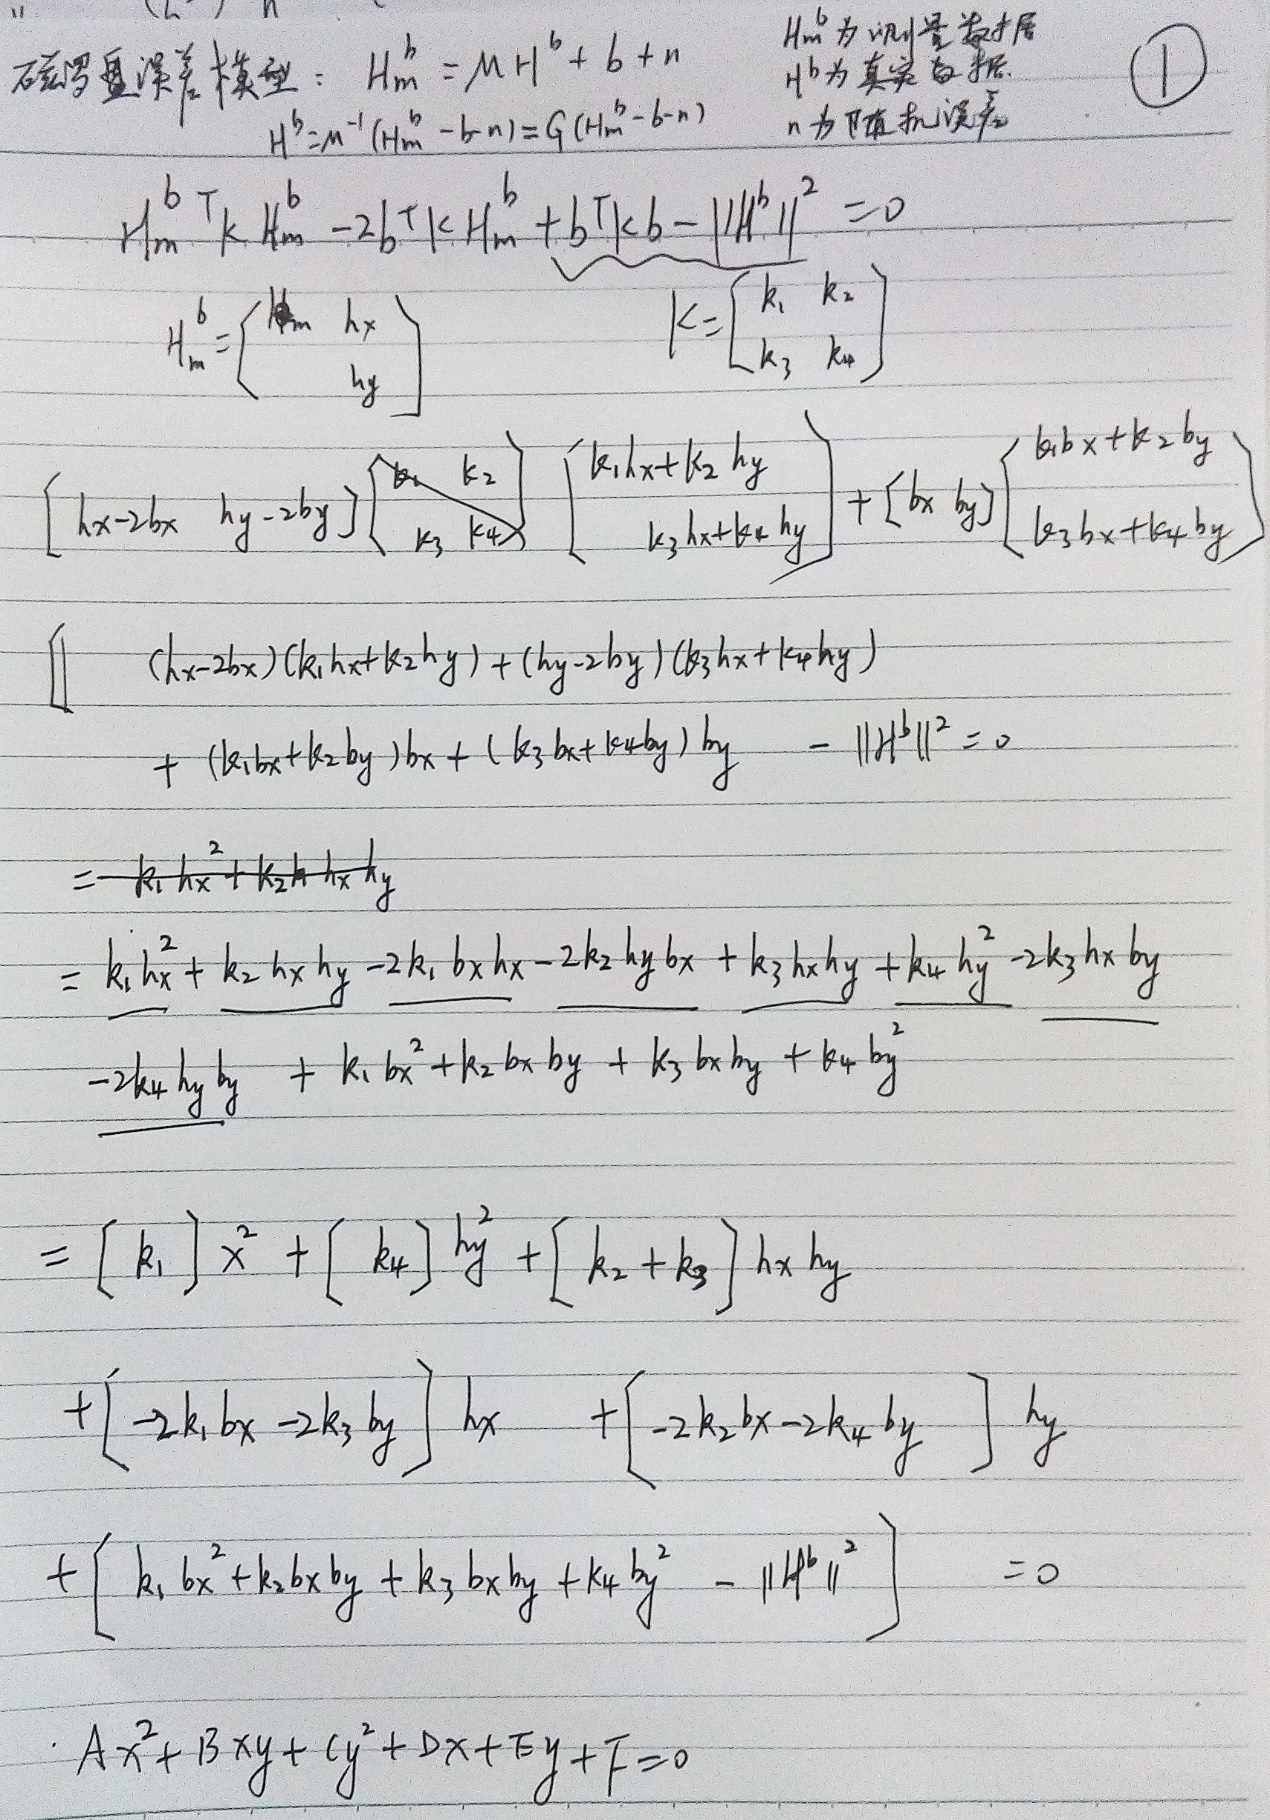 磁罗盘误差模型： H_m^b = M H^b + b + n
H_m^b 为测量数据
H^b 为真实数据.
n 为随机误差
①
H^b = M^{-1} (H_m^b - b - n) = G (H_m^b - b - n)
H_m^{b T} K H_m^b - 2b^T K H_m^b + b^T K b - ||H^b||^2 = 0
H_m^b = [ hx
hy ]
K = [ k_1 k_2
k_3 k_4 ]
[ hx-2bx hy-2by ] [ k_1 k_2
k_3 k_4 ] [ k_1hx+k_2hy
k_3hx+k_4hy ] + [bx by] [ k_1bx+k_2by
k_3bx+k_4by ]
[ (hx-2bx)(k_1hx+k_2hy) + (hy-2by)(k_3hx+k_4hy)
+ (k_1bx+k_2by)bx + (k_3bx+k_4by)by - ||H^b||^2 = 0
= k_1 hx^2 + k_2 h hx hy
= k_1 hx^2 + k_2 hx hy - 2k_1 bx hx - 2k_2 hy bx + k_3 hx hy + k_4 hy^2 - 2k_3 hx by
-2k_4 hy by + k_1 bx^2 + k_2 bx by + k_3 bx by + k_4 by^2
= [ k_1 ] x^2 + [ k_4 ] hy^2 + [ k_2 + k_3 ] hx hy
+ [ -2k_1 bx - 2k_3 by ] hx + [ -2k_2 bx - 2k_4 by ] hy
+ [ k_1 bx^2 + k_2 bx by + k_3 bx by + k_4 by^2 - ||H^b||^2 ] = 0
Ax^2 + Bxy + Cy^2 + Dx + Ey + F = 0